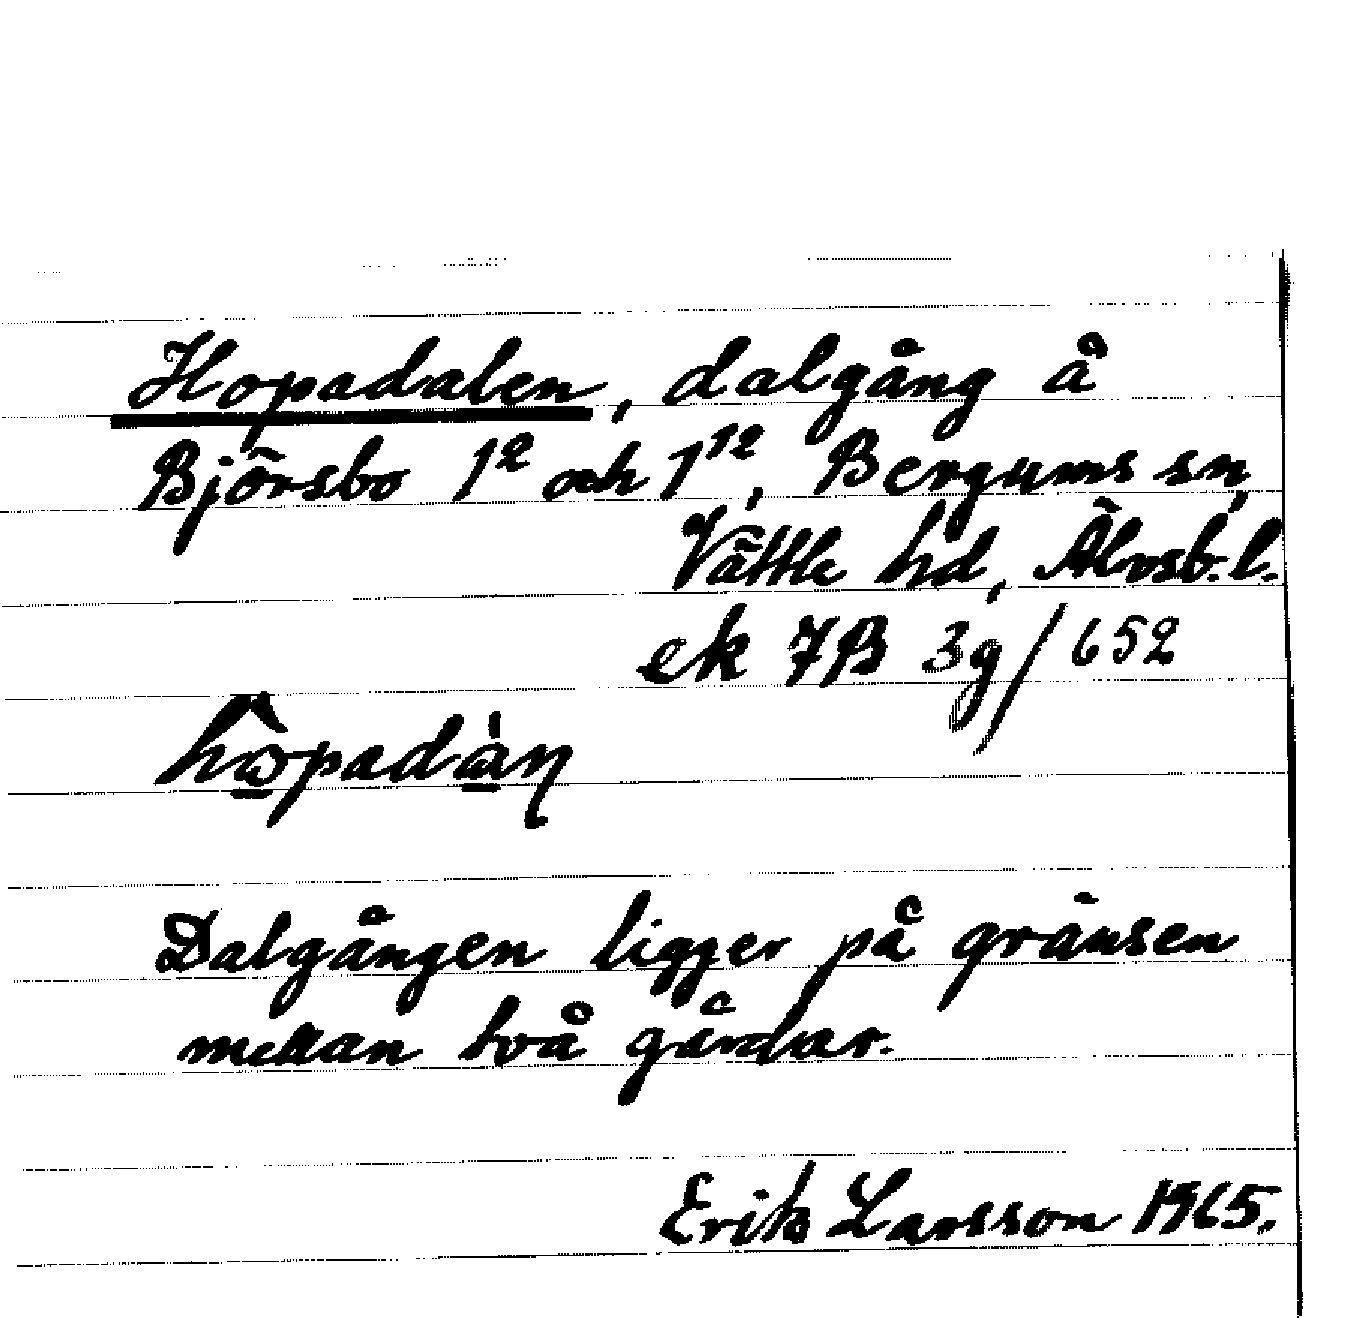 Hopadalen, dalgång å
Björsbo 1² och 1¹², Bergums sn,
Vättle hd, Älvsb. l.
ek 7B 3g/652
hô̱padà̱ṇ
Dalgången ligger på gränsen
mellan två gårdar.
Erik Larsson 1965.